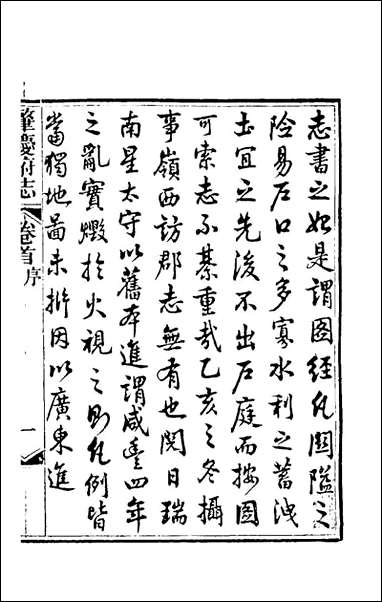 志書之始是謂圖經凡關隘之
險易戶口之多寡水利之蓄洩
土宜之先後不出戶庭而按圖
可索志不綦重哉乙亥之冬攝
事嶺西訪郡志無有也閱日瑞
南星太守以舊本進謂咸豐四年
之亂實燬於火視之則凡例皆
當獨地圖未析因以廣東進
肇慶府志 卷首 序 一